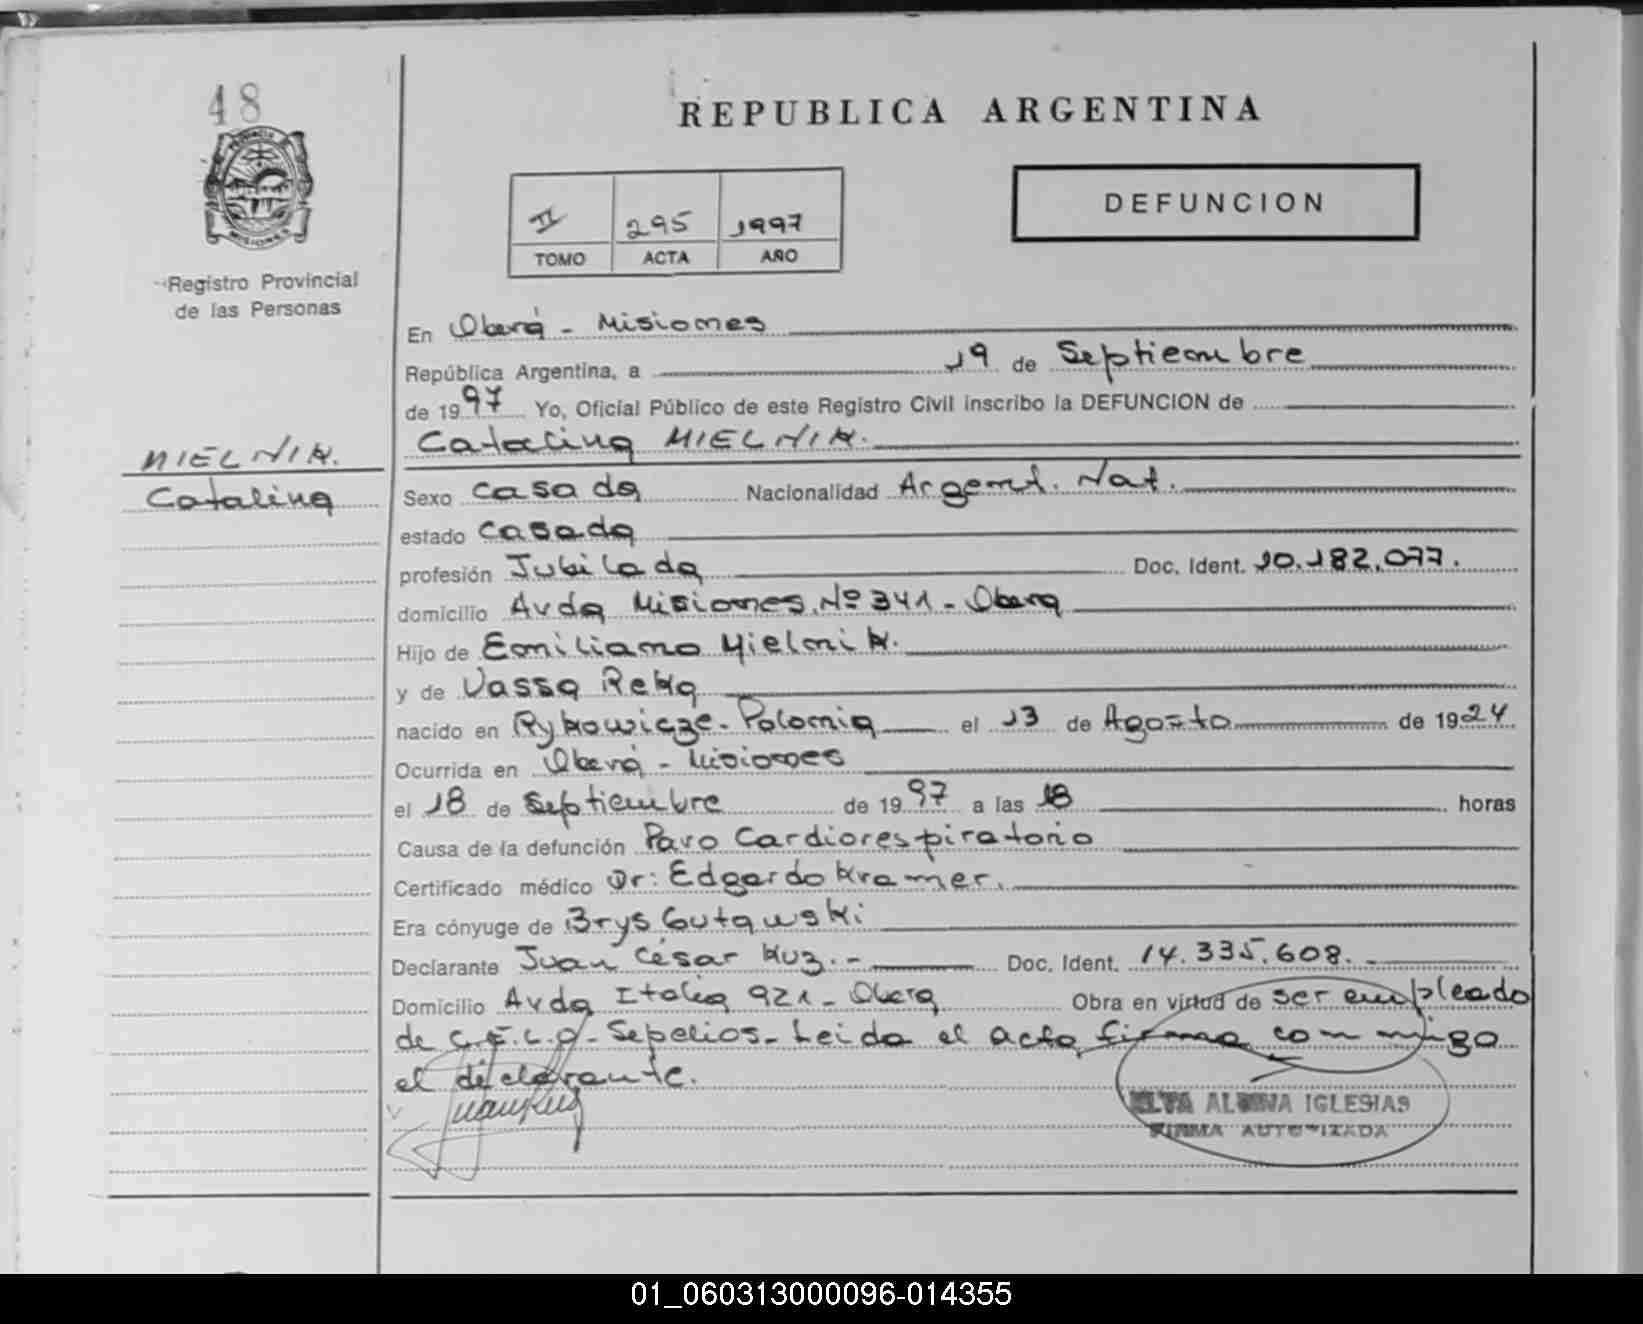 48
PROVINCIA DE
MISIONES
Registro Provincial
de las Personas
REPUBLICA ARGENTINA
II 295 1997
TOMO ACTA AÑO
DEFUNCION
En Oberá - Misiones
República Argentina, a 19 de Septiembre
de 1997 Yo, Oficial Público de este Registro Civil inscribo la DEFUNCION de
Catalina MIELNIK.
MIELNIK.
Catalina
Sexo casada Nacionalidad Argent. Nat.
estado casada
profesión Jubilada Doc. Ident. 10.182.077.
domicilio Avda Misiones Nº 341 - Obera
Hijo de Emiliano Mielnik.
y de Vassa Reka
nacido en Rykowicze - Polonia el 13 de Agosto de 1924
Ocurrida en Oberá - Misiones
el 18 de Septiembre de 1997 a las 18 horas
Causa de la defunción Paro Cardiorespiratorio
Certificado médico Dr: Edgardo Kramer.
Era cónyuge de Brys Gutawski
Declarante Juan César Kuz. - Doc. Ident. 14.335.608.
Domicilio Avda Italia 921 - Obera Obra en virtud de ser empleado
de C.E.L.O - Sepelios - Leida el acta firma con migo
el declarante.
Juan Kuz
ALBINA IGLESIAS
FIRMA AUTORIZADA
01_060313000096-014355